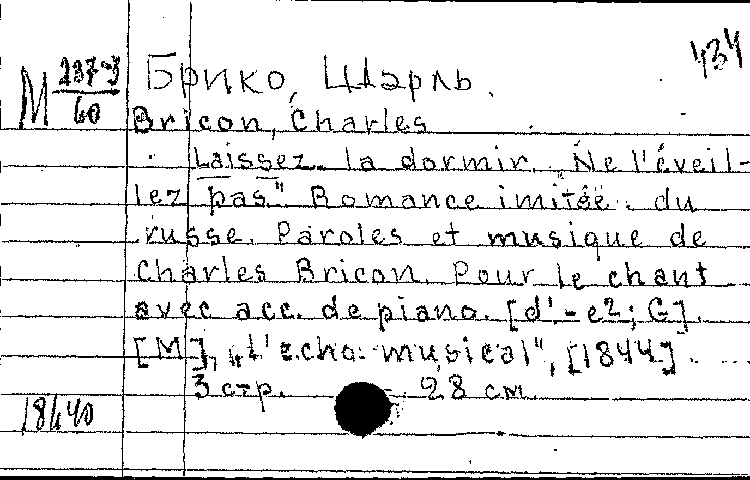 434
М 237-3/60
Брико, Шарль.
Bricon, Charles
Laissez la dormir. „Ne l'éveil-
lez pas". Romance imitée du
russe. Paroles et musique de
Charles Bricon. Pour le chant
avec acc. de piano. [d¹-e²; G].
[M], „L'echo musical", [1844].
3 стр. 28 см.
18440